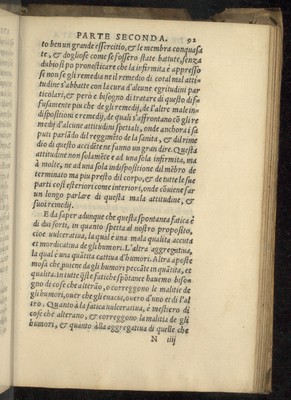 PARTE SECONDA. 92
to ben un grande essercitio, & le membra conquassa
te, & dogliose come se fossero state battute, senza
dubio si po pronosticare che la infirmità è appresso
se non se gli remedia ne il remedio di cotal mal atti-
tudine s'abbatte con la cura d'alcune egritudini par
ticolari, & però è bisogno di tratare di questo dif-
fusamente piu che de gli remedij, de l'altre male in-
dispositioni e remedij, de quali s'affrontano cõ gli re
medij d'alcune attitudini spetiali, onde anchora i sa
puti parlãdo del reggimẽto de la sanità, & dil rime
dio di questo accidẽte ne fanno un gran dire. Questa
attitudine non solamẽte è ad una sola infirmita, ma
à molte, ne ad una sola indispositione dil mẽbro de
terminato ma piu presto dil corpo, & de tutte le sue
parti cosi esteriori come interiori, onde cõuiene far
un longo parlare di questa mala attitudine, &
suoi remedij.
E da saper adunque che questa spontanea fatica è
di dui sorti, in quanto spetta al nostro proposito,
cioe vlceratiua, la qual è una mala qualità, accuta
et mordicatiua de gli humori. L'altra aggregatiua,
la qual è una quãtita cattiua d'humori. Altra aposte
mosa che puiene da gli humori peccãte in quãtita, et
qualita. in tutte q̃ste fatiche spõtanee hauemo biso-
gno di cose che alterão, o correggono le malitie de
gli humori, ouer che gli euacui, ouero d'uno et di l'al
tro. Quanto à la fatica vulceratiua, è mestiero di
cose che alterano, & correggono la malitia de gli
humori, & quanto alla aggregatiua di quelle che
N iiij